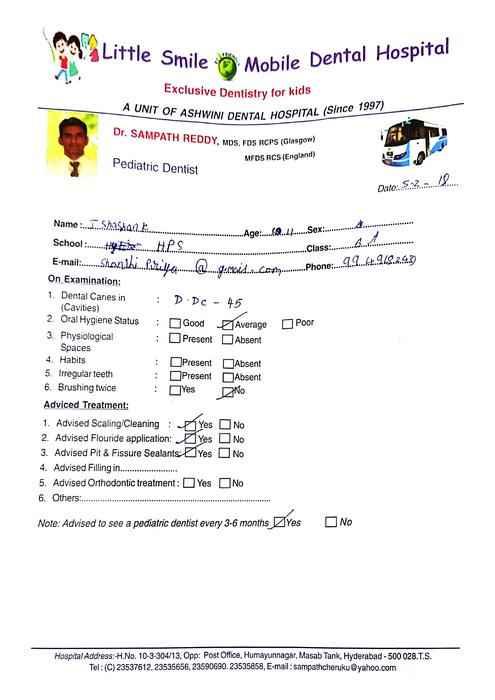 Little Smile Mobile Dental Hospital
Exclusive Dentistry for kids
A UNIT OF ASHWINI DENTAL HOSPITAL (Since 1997)
Dr. SAMPATH REDDY, MDS, FDS RCPS (Glasgow)
MFDS RCS (England)
Pediatric Dentist
Date: 5-2-18
Name: J Shashank Age: 11 Sex:
School: HPS Class:
E-mail: Shanthi Priya @ gmail.com Phone:
On Examination:
1. Dental Caries in (Cavities) : D.Dc - 45
2. Oral Hygiene Status : Good Average Poor
3. Physiological Spaces : Present Absent
4. Habits : Present Absent
5. Irregular teeth : Present Absent
6. Brushing twice : Yes No
Adviced Treatment:
1. Advised Scaling/Cleaning : Yes No
2. Advised Flouride application: Yes No
3. Advised Pit & Fissure Sealants: Yes No
4. Advised Filling in....................
5. Advised Orthodontic treatment : Yes No
6. Others:............................................................
Note: Advised to see a pediatric dentist every 3-6 months Yes No
Hospital Address:-H.No. 10-3-304/13, Opp: Post Office, Humayunnagar, Masab Tank, Hyderabad - 500 028.T.S.
Tel : (C) 23537612, 23535656, 23590690. 23535858, E-mail : sampathcheruku@yahoo.com